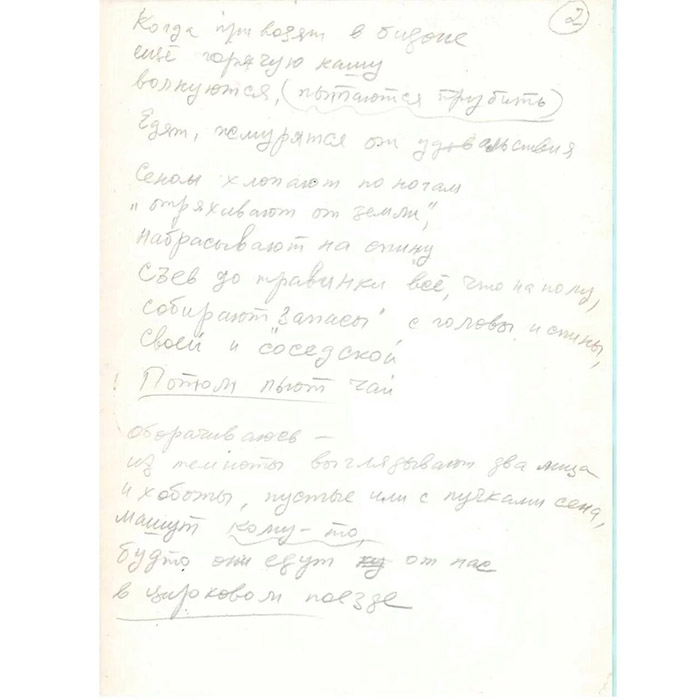 2
Когда привозят в бидоне
ещё горячую кашу
волнуются, (пытаются трубить)
Едят, жмурятся от удовольствия
Сеном хлопают по ногам
"отряхивают от земли",
набрасывают на спину
Съев до травинки всё, что на полу,
собирают "запасы" с головы и спины,
своей и соседской
! Потом пьют чай
оборачиваюсь –
из темноты выглядывают два лица
и хоботы, пустые или с пучками сена,
машут кому-то,
будто они едут от нас
в цирковом поезде